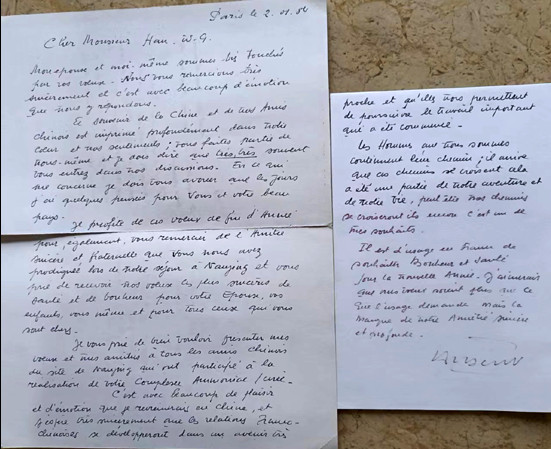 Paris le 2.01.84
Cher Monsieur Han. W.G.
Mon epouse et moi-même sommes très touchés
par vos vœux. Nous vous remercions très
sincèrement et c'est avec beaucoup d'émotion
que nous y répondons.
Le souvenir de la Chine et de nos Amis
chinois est imprimé profondement dans notre
cœur et nos sentiments ; vous faites partie de
nous-même et je dois dire que très, très souvent
vous entrez dans nos discussions. En ce qui
me concerne je dois vous avouer que les jours
j'ai quelques pensées pour vous et votre beau
pays.
Je profite de ces voeux de fin d'Année
pour, également, vous remercier de l'Amitié
sincère et fraternelle que vous nous avez
prodiguée lors de notre séjour à Nanjing et vous
prie de recevoir nos voeux les plus sincères de
santé et de bonheur pour votre Epouse, vos
enfants, vous même et pour tous ceux qui vous
sont chers.
Je vous prie de bien vouloir presenter mes
vœux et mes amitiés à tous les amis chinois
du site de Nanjing qui ont participé à la
réalisation de votre Complexe Ammoniac / urée.
C'est avec beaucoup de plaisir
et d'émotion que je reviendrai en chine, et
j'espère très sincèrement que les relations Franco-
chinoises se développeront dans un avenir très
proche et qu'elles nous permettront
de poursuivre le travail important
qui a été commencé.
Les Hommes que nous sommes
continuent leur chemin ; il arrive
que ces chemins se croisent cela
a été une partie de notre aventure et
de notre vie, peut être nos chemins
se croiseront ils encore c'est un de
mes souhaits.
Il est d'usage en France de
souhaiter Bonheur et Santé
pour la nouvelle Année. J'aimerais
que mes voeux soient plus que ce
que l'usage demande mais la
marque de notre Amitié sincère
et profonde.